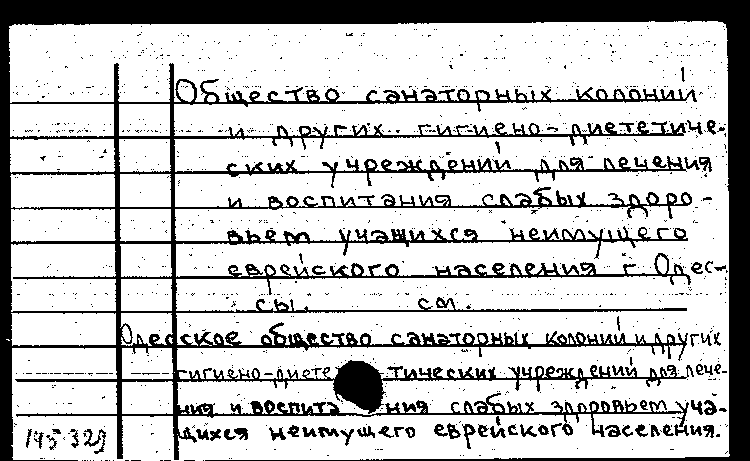 Общество санаторных колоний
и других гигиено-диететиче-
ских учреждений для лечения
и воспитания слабых здоро-
вьем учащихся неимущего
еврейского населения г. Одес-
сы. см.
Одесское общество санаторных колоний и других
гигиено-диете тических учреждений для лече-
ния и воспита ния слабых здоровьем уча-
145.329 щихся неимущего еврейского населения.